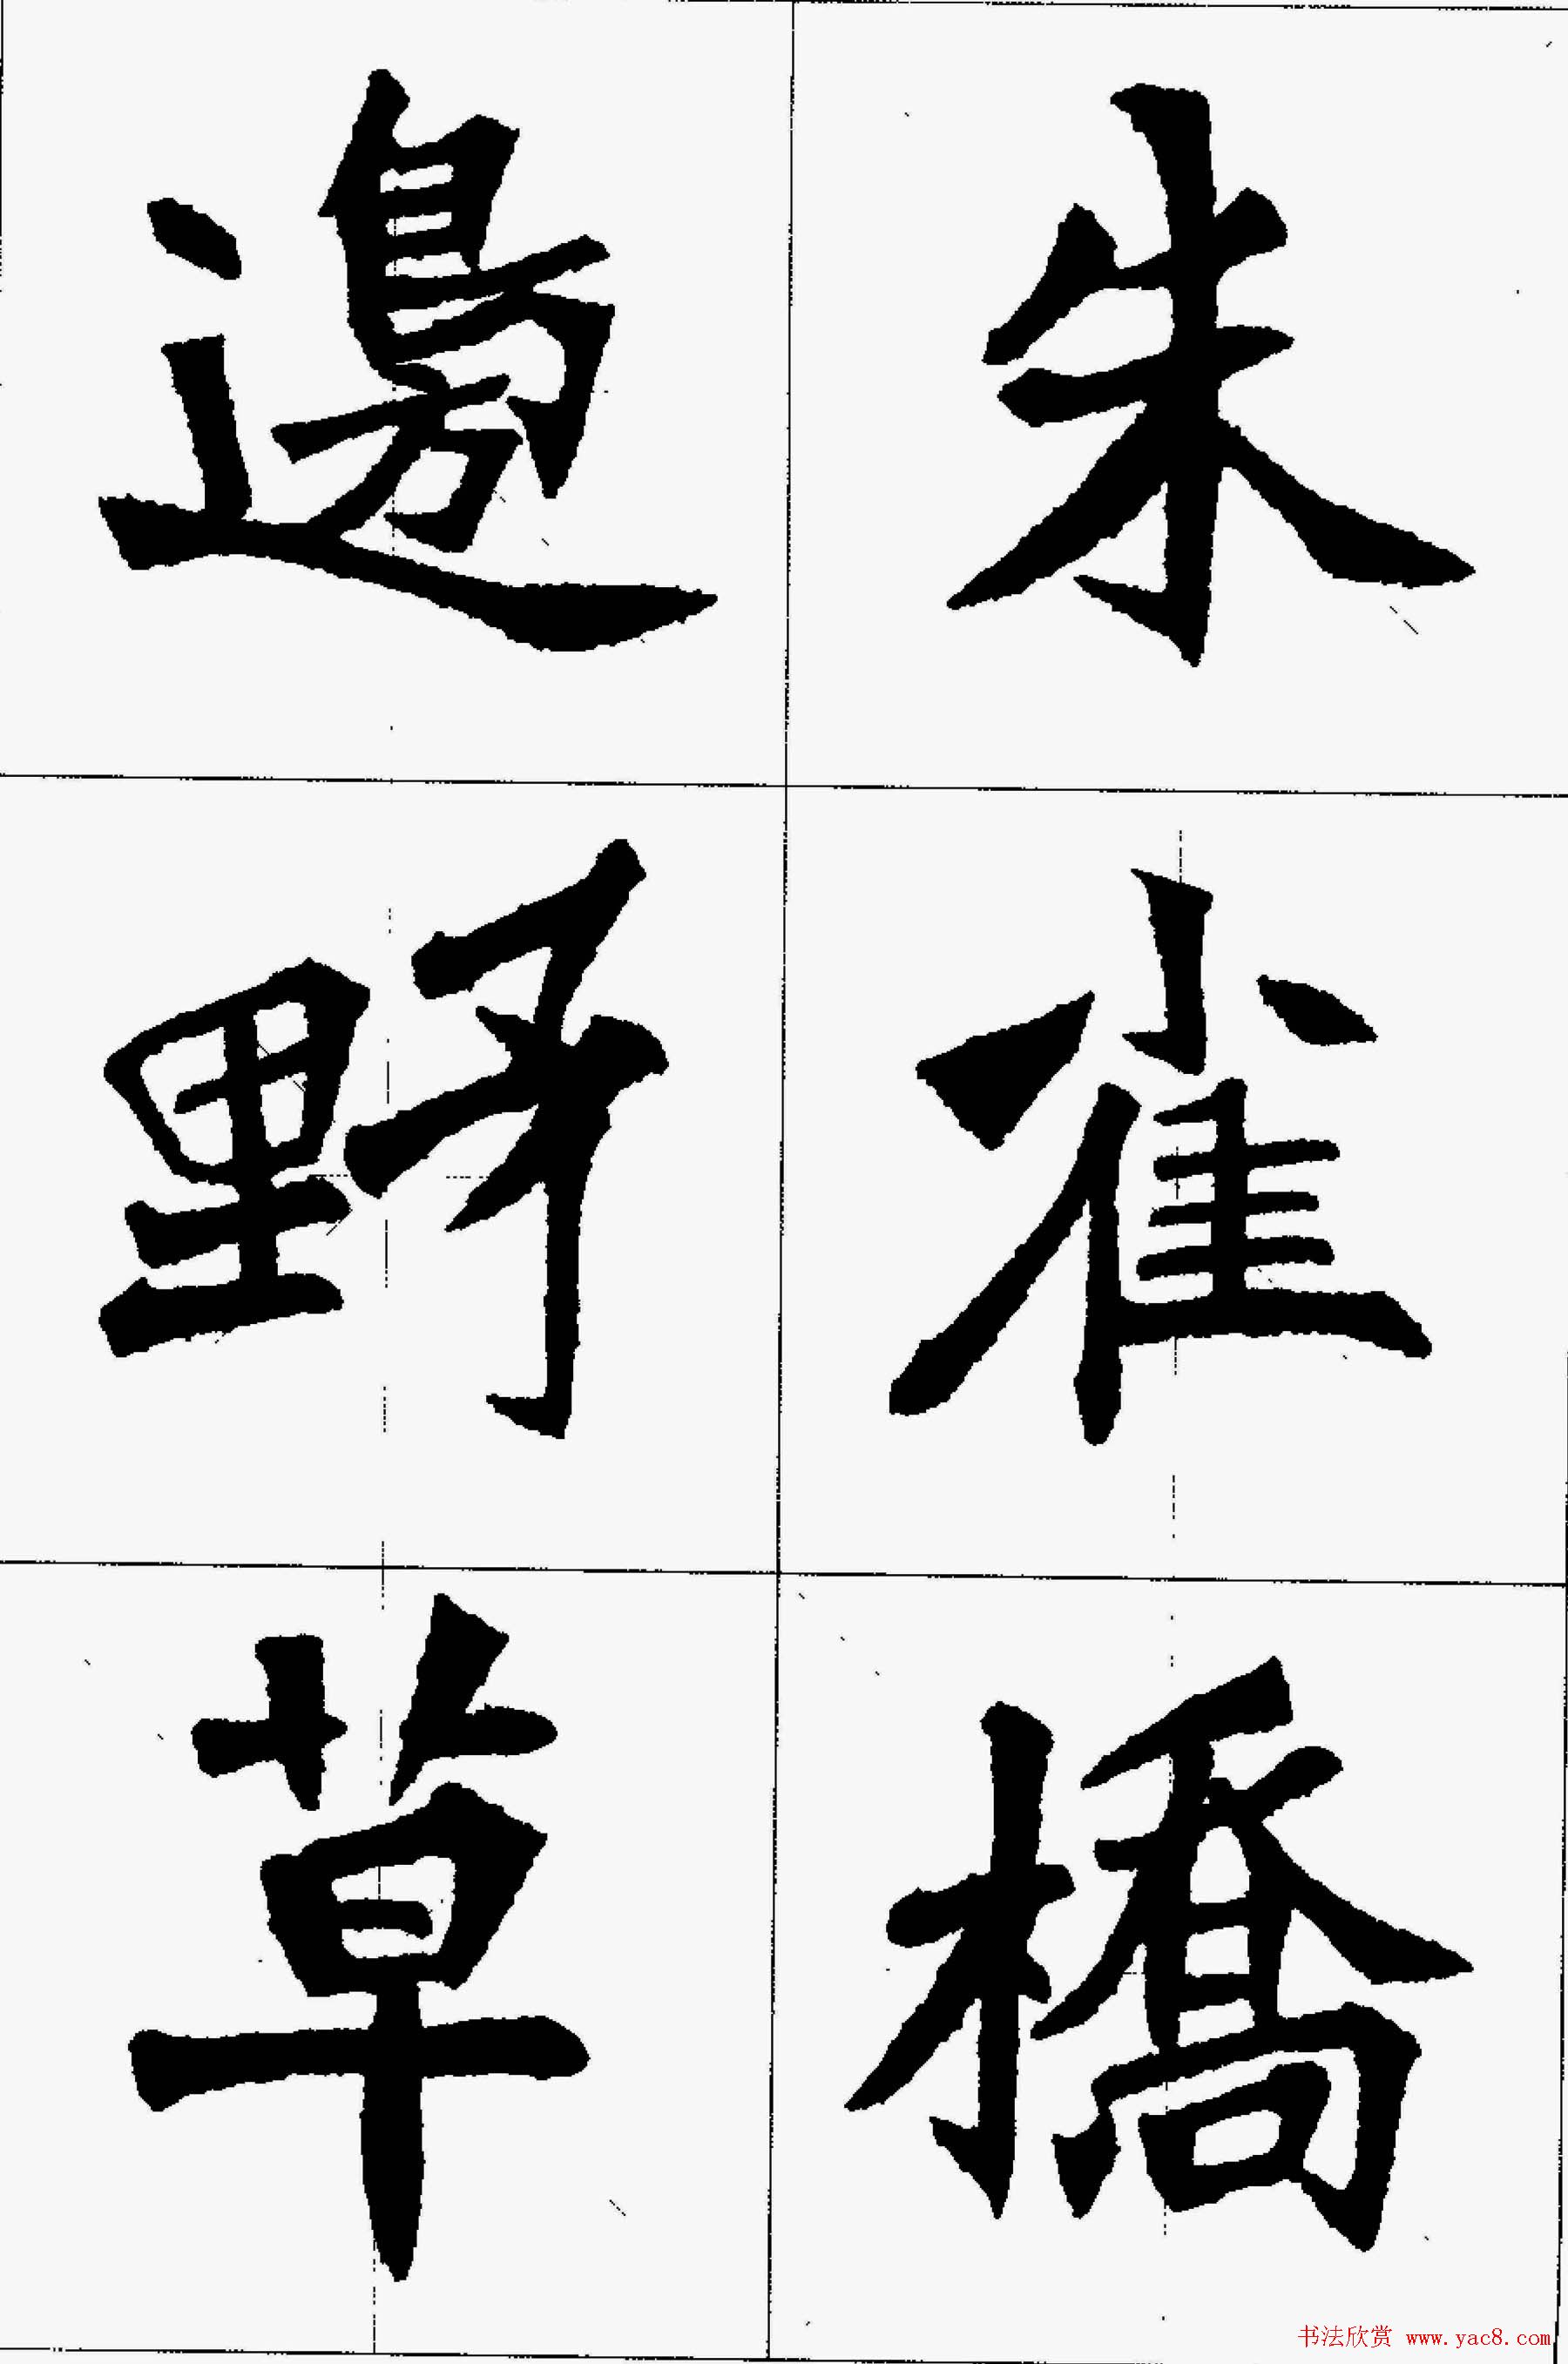 朱雀橋
邊野草
书法欣赏 www.yac8.com